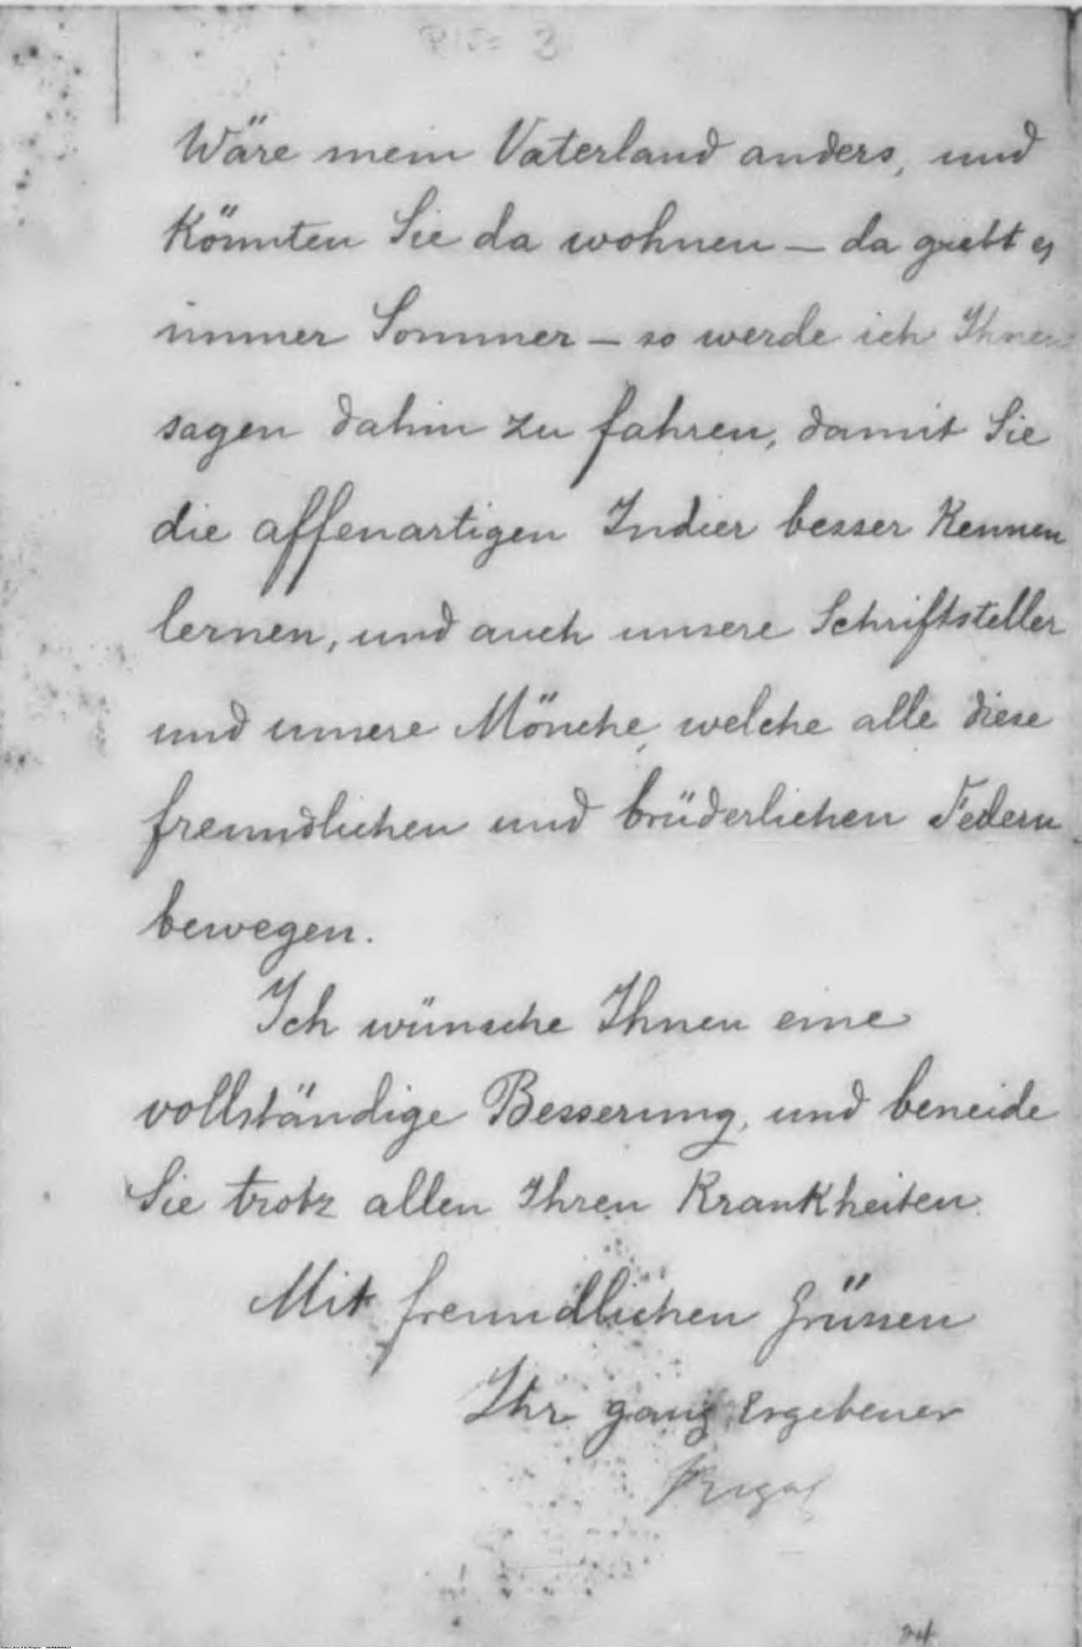 Wäre mein Vaterland anders, und
Könnten Sie da wohnen — da giebt es
immer Sommer — so werde ich Ihnen
sagen dahin zu fahren, damit Sie
die affenartigen Indier besser Kennen
lernen, und auch unsere Schriftsteller
und unsere Mönche, welche alle diese
freundlichen und brüderlichen Federn
bewegen.
Ich wünsche Ihnen eine
vollständige Besserung, und beneide
Sie trotz allen Ihren Krankheiten.
Mit freundlichen Grüssen
Ihr ganz Ergebener
Rizal